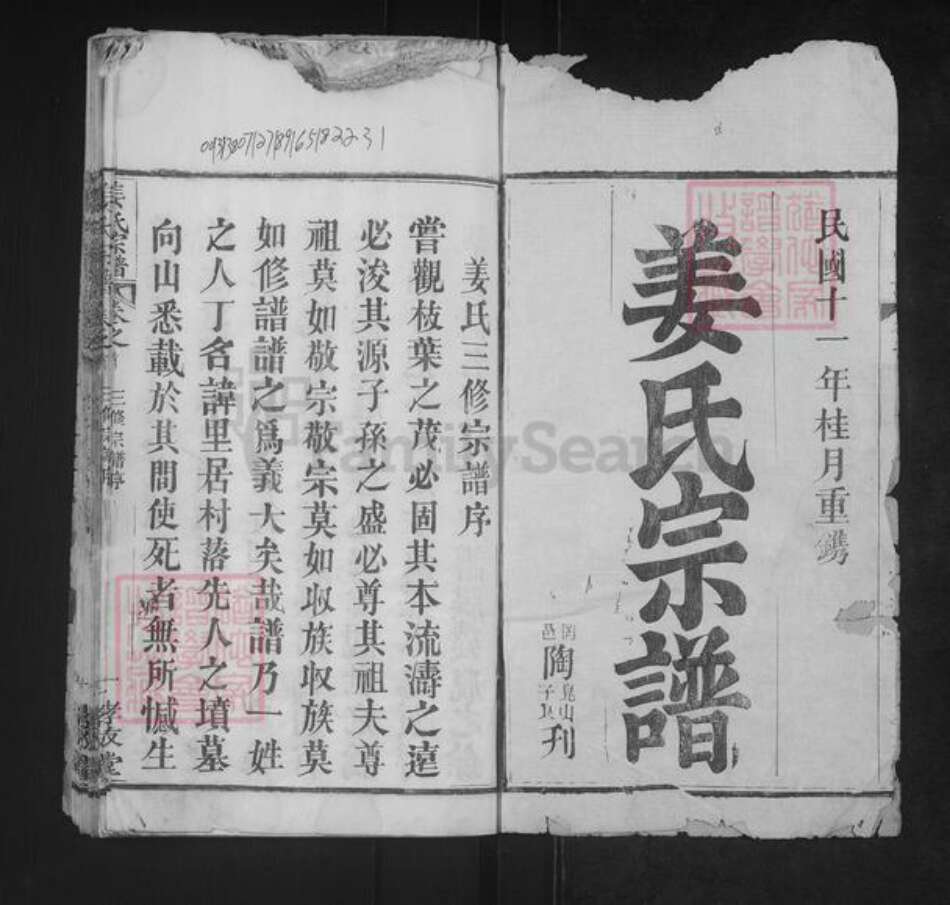 民國十一年桂月重鐫
姜氏宗譜
陶
刊
姜氏三修宗譜序
嘗觀枝葉之茂必固其本流濤之遠
必浚其源子孫之盛必尊其祖夫尊
祖莫如敬宗敬宗莫如収族収族莫
如修譜譜之爲義大矣哉譜乃一姓
之人丁名諱里居村落先人之墳墓
向山悉載於其間使死者無所憾生
姜氏宗譜 卷之首 三修宗譜序 一 孝友堂
FamilySearch